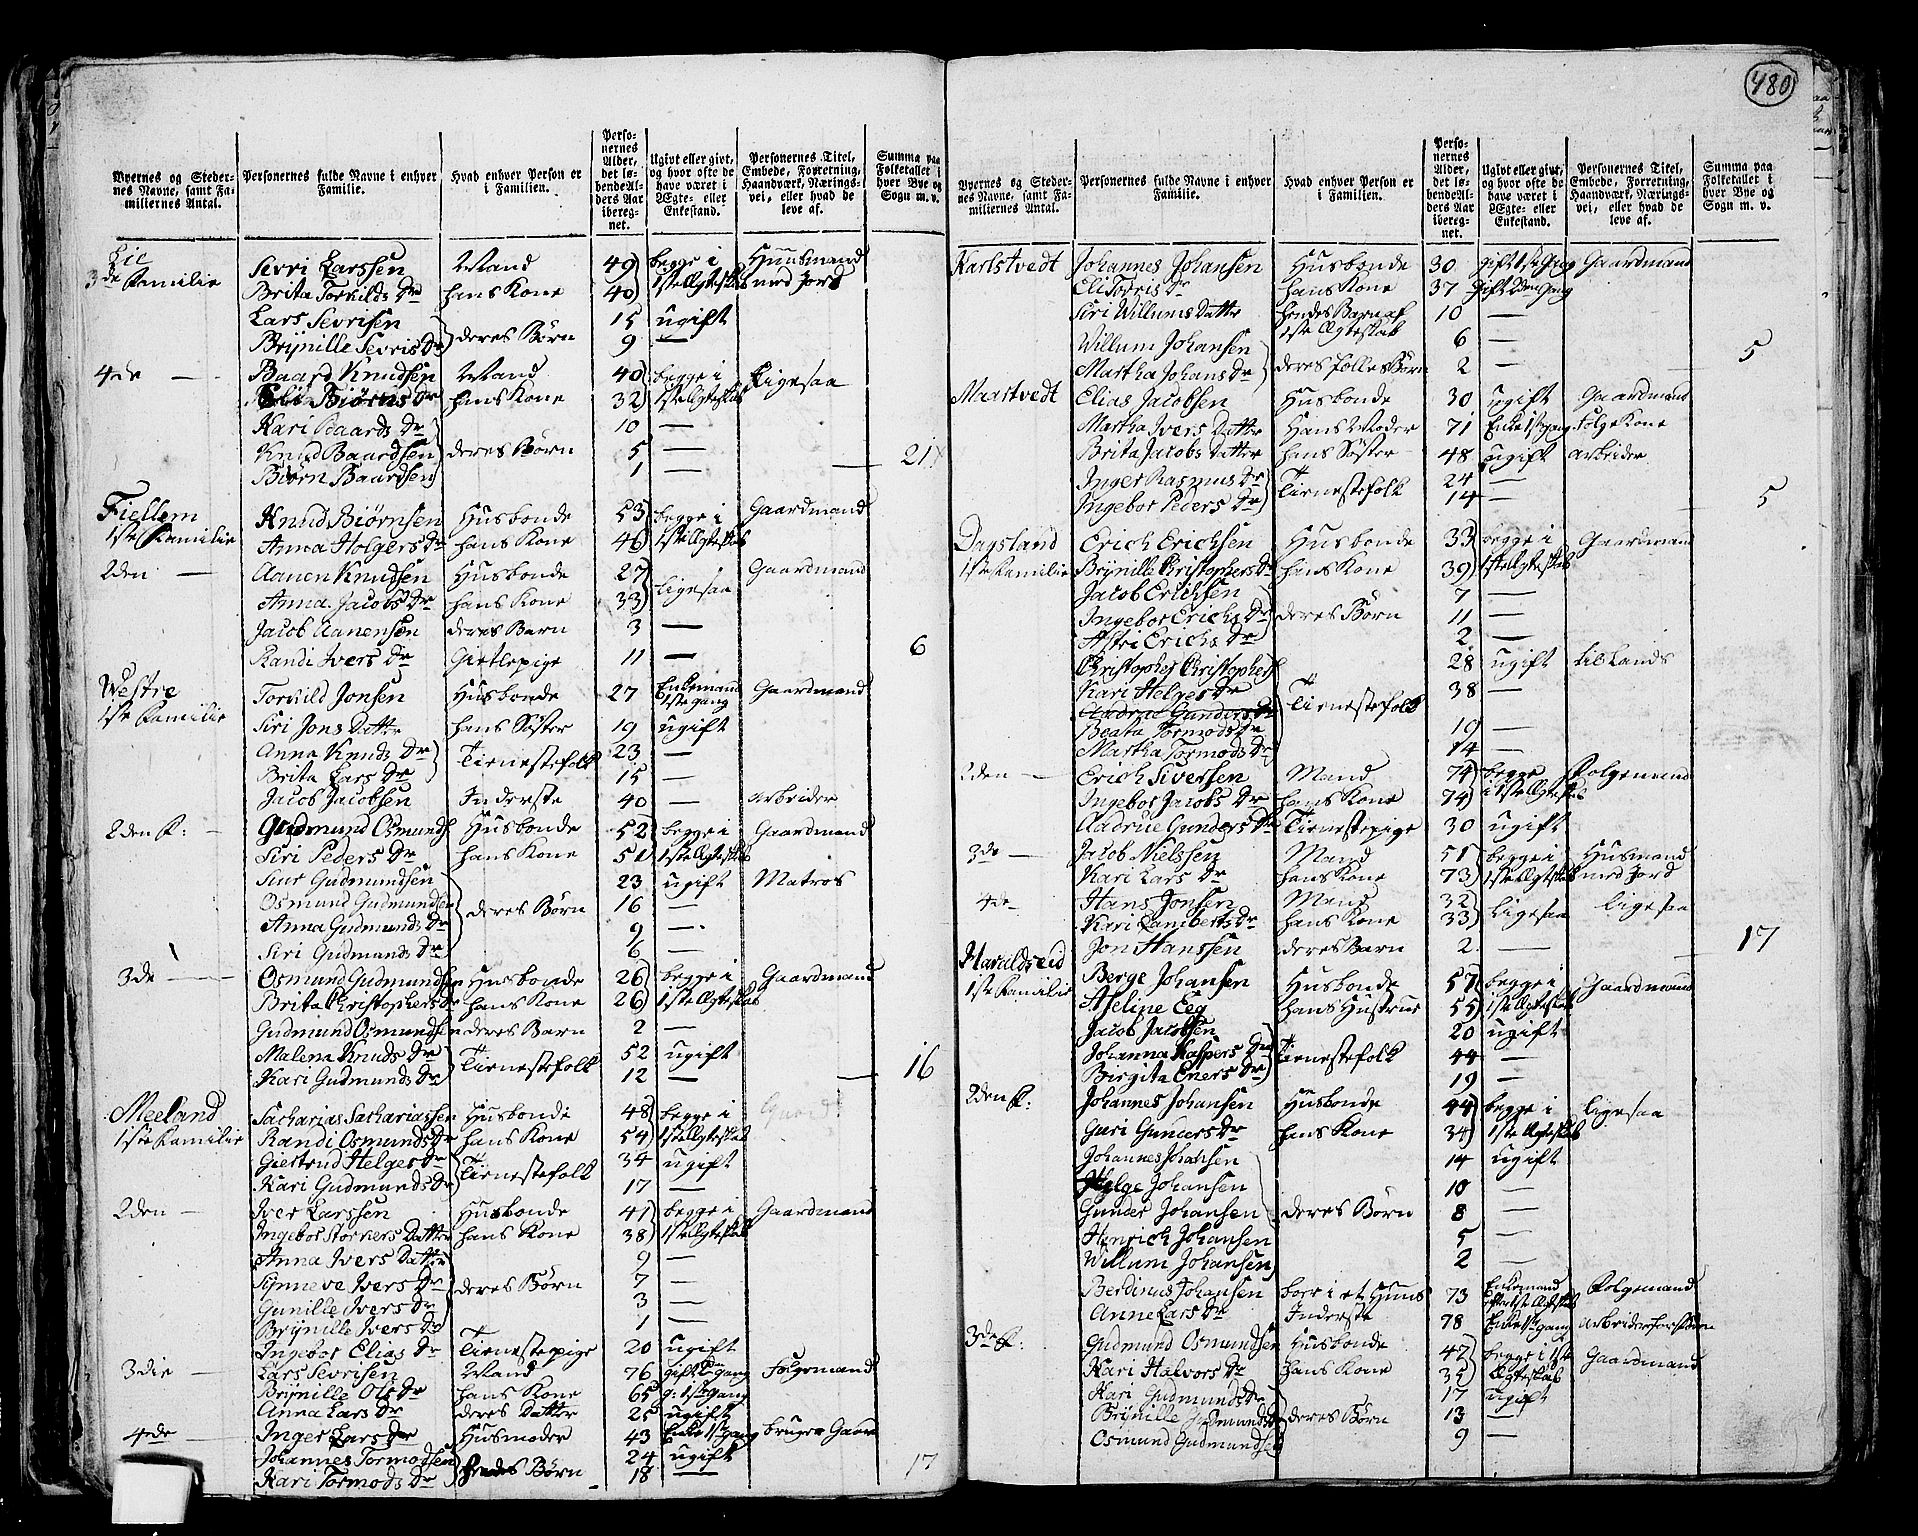 480
Byernes og Steder-
nes Navne, samt Fa-
miliernes Antal.
Personernes fulde Navne i enhver
Familie.
Hvad enhver Person er
i Familien.
Perso-
nernes
Alder,
det lø-
bende Al-
ders Aar
ibereg-
net.
Ugivt eller givt,
og hvor ofte de
have været i
Ægte- eller
Enkestand.
Personernes Titel,
Embede, Forretning,
Haandværk, Nærings-
vei, eller hvad de
leve af.
Summa paa
Folketallet i
hver Bye og
Sogn m. v.
Lie
3de Familie Sevri Larssen Mand 49 begge i Huusmand
Brita Torkilds Dr hans Kone 40 1ste Ægteskab med Jord
Lars Sevrisen 15 ugift
Brÿnille Sevris Dr deres Børn 9 —
4de — Baard Knudsen Mand 40 begge i Ligesaa
Biørns Dr hans Kone 32 1ste Ægteskab
Kari Baards Dr 10 —
Knud Baardsen deres Børn 5 —
Biørn Baardsen 1 — 21
Fiellem Knud Biørnsen Husbonde 53 begge i Gaardmand
1ste Familie Anna Holgers Dr hans Kone 46 1ste Ægteskab
2den — Aanen Knudsen Husbonde 27 Ligesaa Gaardmand
Anna Jacobs Dr hans Kone 33
Jacob Aanensen deres Barn 3 —
Randi Ivers Dr Gietlepige 11 — 6
Westre Torkild Jonsen Husbonde 27 Enkemand 1ste gang Gaardmand
1ste Familie
Siri Jons Datter hans Søster 19 ugift
Anna Knuds Dr Tienestefolk 23 —
Brita Lars Dr 15 —
Jacob Jacobsen Inderste 40 — Arbeider
2den F: — Gudmund Osmunds Husbonde 52 begge i Gaardmand
Siri Peders Dr hans Kone 51 1ste Ægteskab
Gudmundsen 23 ugift Matros
Osmund Gudmundsen deres Børn 16 —
Anna Gudmunds Dr 9 —
Siri Gudmands Dr 6 —
3de — Osmund Gudmundsen Husbonde 26 begge i Gaardmand
Brita Christophers Dr hans Kone 26 1ste Ægteskab
Gudmund Osmundsen deres Barn 2 —
Malena Knuds Dr Tienestefolk 52 ugift
Kari Gudmunds Dr 12 — 16
Meeland Sacharias Sachariassen Husbonde 48 begge i Gaard
1ste Familie Randi Osmunds Dr hans Kone 54 1ste Ægteskab
Giertrud Helges Dr Tienestefolk 34 ugift
Kari Gudmunds Dr 17 —
2den — Iver Larssen Husbonde 41 begge i Gaardmand
Ingebor Storkers Datter hans Kone 38 1ste Ægteskab
Anna Ivers Datter 9 —
Sÿnneve Ivers Dr deres Børn 7 —
Gunille Ivers Dr 3 —
Brÿnille Ivers Dr 1 —
Ingebor Elias Dr Tienestepige 20 ugift
3die — Lars Sevrisen Mand 76 gift gang Følgemand
Brÿnille Ols Dr hans Kone 65 g: 1ste gang
Anna Lars Dr deres Datter 25 ugift
4de — Inger Lars Dr Husmoder 43 Enke 1ste gang bruger Gaard
Johannes Tormodsen 24 ugift
Kari Tormods Dr hendes Børn 18 — 17
Byernes og Steder-
nes Navne, samt Fa-
miliernes Antal.
Personernes fulde Navne i enhver
Familie.
Hvad enhver Person er
i Familien.
Perso-
nernes
Alder,
det lø-
bende Al-
ders Aar
ibereg-
net.
Ugivt eller givt,
og hvor ofte de
have været i
Ægte- eller
Enkestand.
Personernes Titel,
Embede, Forretning,
Haandværk, Nærings-
vei, eller hvad de
leve af.
Summa paa
Folketallet i
hver Bye og
Sogn m. v.
Karlstvedt Johannes Johansen Husbonde 30 gift 1ste Gang Gaardmand
Eli Torris Dr hans Kone 37 gift 2den Gang
Siri Willums Datter hendes Barn af 10 —
1ste Ægteskab
Willum Johansen 6 —
Martha Johans Dr deres fælles Børn 2 — 5
Maastvedt Elias Jacobsen Husbonde 30 ugift Gaardmand
Martha Ivers Datter Hans Moder 71 Enke 1ste gang Følge Kone
Brita Jacobs Datter hans Søster 48 ugift arbeider
Inger Rasmus Dr Tienestefolk 24 —
Ingebor Peders Dr 14 — 5
Dagsland Erich Erichsen Husbonde 33 begge i Gaardmand
1ste Familie Brÿnille Christophers Dr hans Kone 39 1ste Ægteskab
Jacob Erichsen 7 —
Ingebor Erichs Dr deres Børn 11 —
Astri Erichs Dr 2 —
Christopher Christophers 28 ugift til Lands
Kari Helges Dr Tienestefolk 38 —
Aadrue Gunders Dr
Beata Tormods Dr 19 —
Martha Tormods Dr 14 —
2den — Erich Siversen Mand 74 begge Følgemand
Ingebor Jacobs Dr hans Kone 74 i 1ste Ægteskab
Aadrue Gunders Dr Tienestepige 30 ugift
3de — Jacob Nielssen Mand 51 begge i Husmand
Kari Lars Dr hans Kone 73 1ste Ægteskab med Jord
4de Hans Jonsen Mand 32 Ligesaa ligesaa
Kari Lamberts Dr hans Kone 33
Jon Hanssen deres Barn 2 — 17
Haraldseid Berge Johansen Husbonde 57 begge i Gaardmand
1ste Familie Aseline Eeg hans Hustrue 55 1ste Ægteskab
Jacob Jacobsen 20 ugift
Johanna Kaspers Dr Tienestefolk 44 —
Birgita Eners Dr 19 —
2den F: Johannes Johansen Husbonde 44 begge i ligesaa
Guri Gunders Dr hans Kone 34 1ste Ægteskab
Johannes Johansen 14 ugift
Helge Johansen 10 —
Gunder Johansen deres Børn 8 —
Henrich Johansen 5 —
Willum Johansen 2 —
Berdinus Johansen boer i et Huus 73 Enkemand Følgemand
Anne Lars Dr Inderste 78 Enke 1ste gang
3de F: Gudmund Osmundsen Husbonde 47 begge i 1ste Gaardmand
Kari Halvors Dr hans Kone 35 Ægteskab
Kari Gudmunds Dr 17 ugift
Brÿnille Gudmunds Dr deres Børn 13 —
Osmund Gudmundsen 9 —